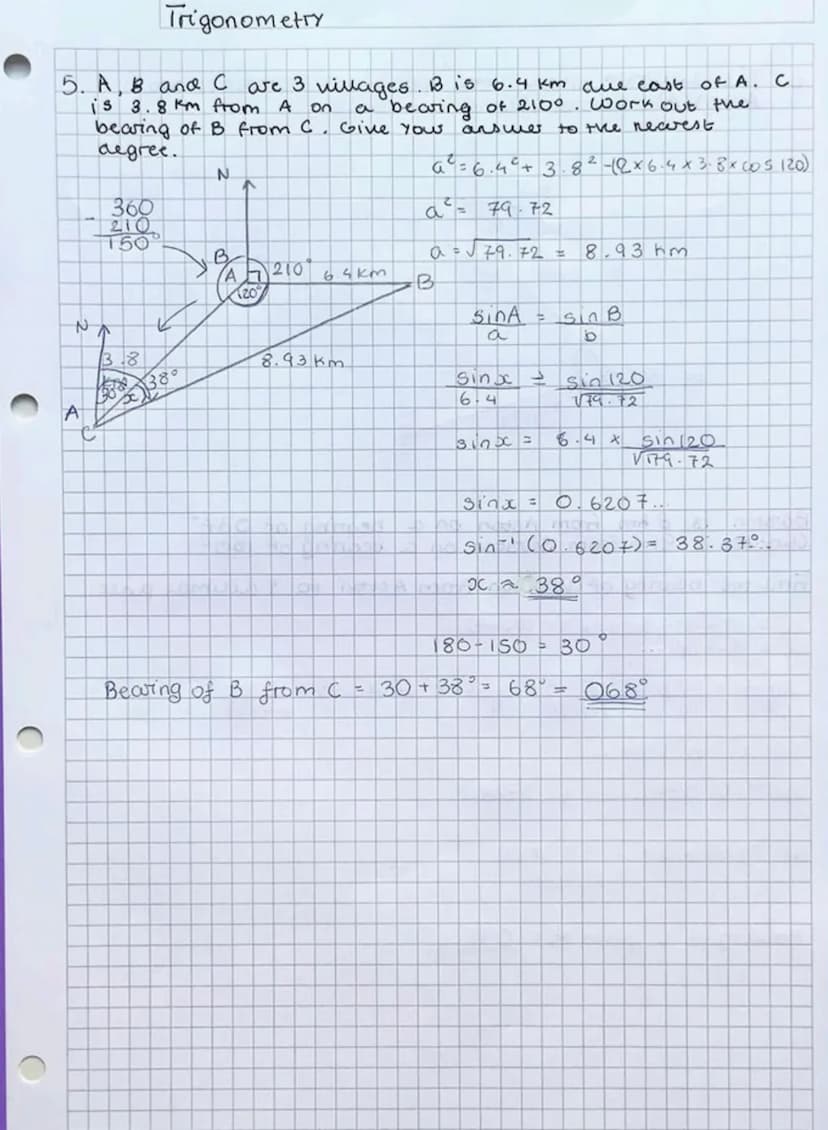 Trigonometry
5. A, B and C are 3 villages. B is 6.4 km due east of A. C
is 3.8 km from A on a bearing of 210°. Work out the
bearing of B from C. Give your answer to the nearest
degree.
a² = 6.4² + 3.8² -(2 x 6.4 x 3.8 x cos 120)
a² = 79.72
a = √79.72 = 8.93 km
N
360
- 210
150°
B
A
210°
6.4 km
B
120°
N
3.8
38°
x
30
8.93 km
A
C
sin A = sin B
a b
sin x = sin 120
6.4 √79.72
sin x = 6.4 x sin 120
√79.72
sin x = 0.6207...
sin⁻¹ (0.6207) = 38.37°..
x ≈ 38°
180 - 150 = 30°
Bearing of B from C = 30 + 38° = 68° = 068°